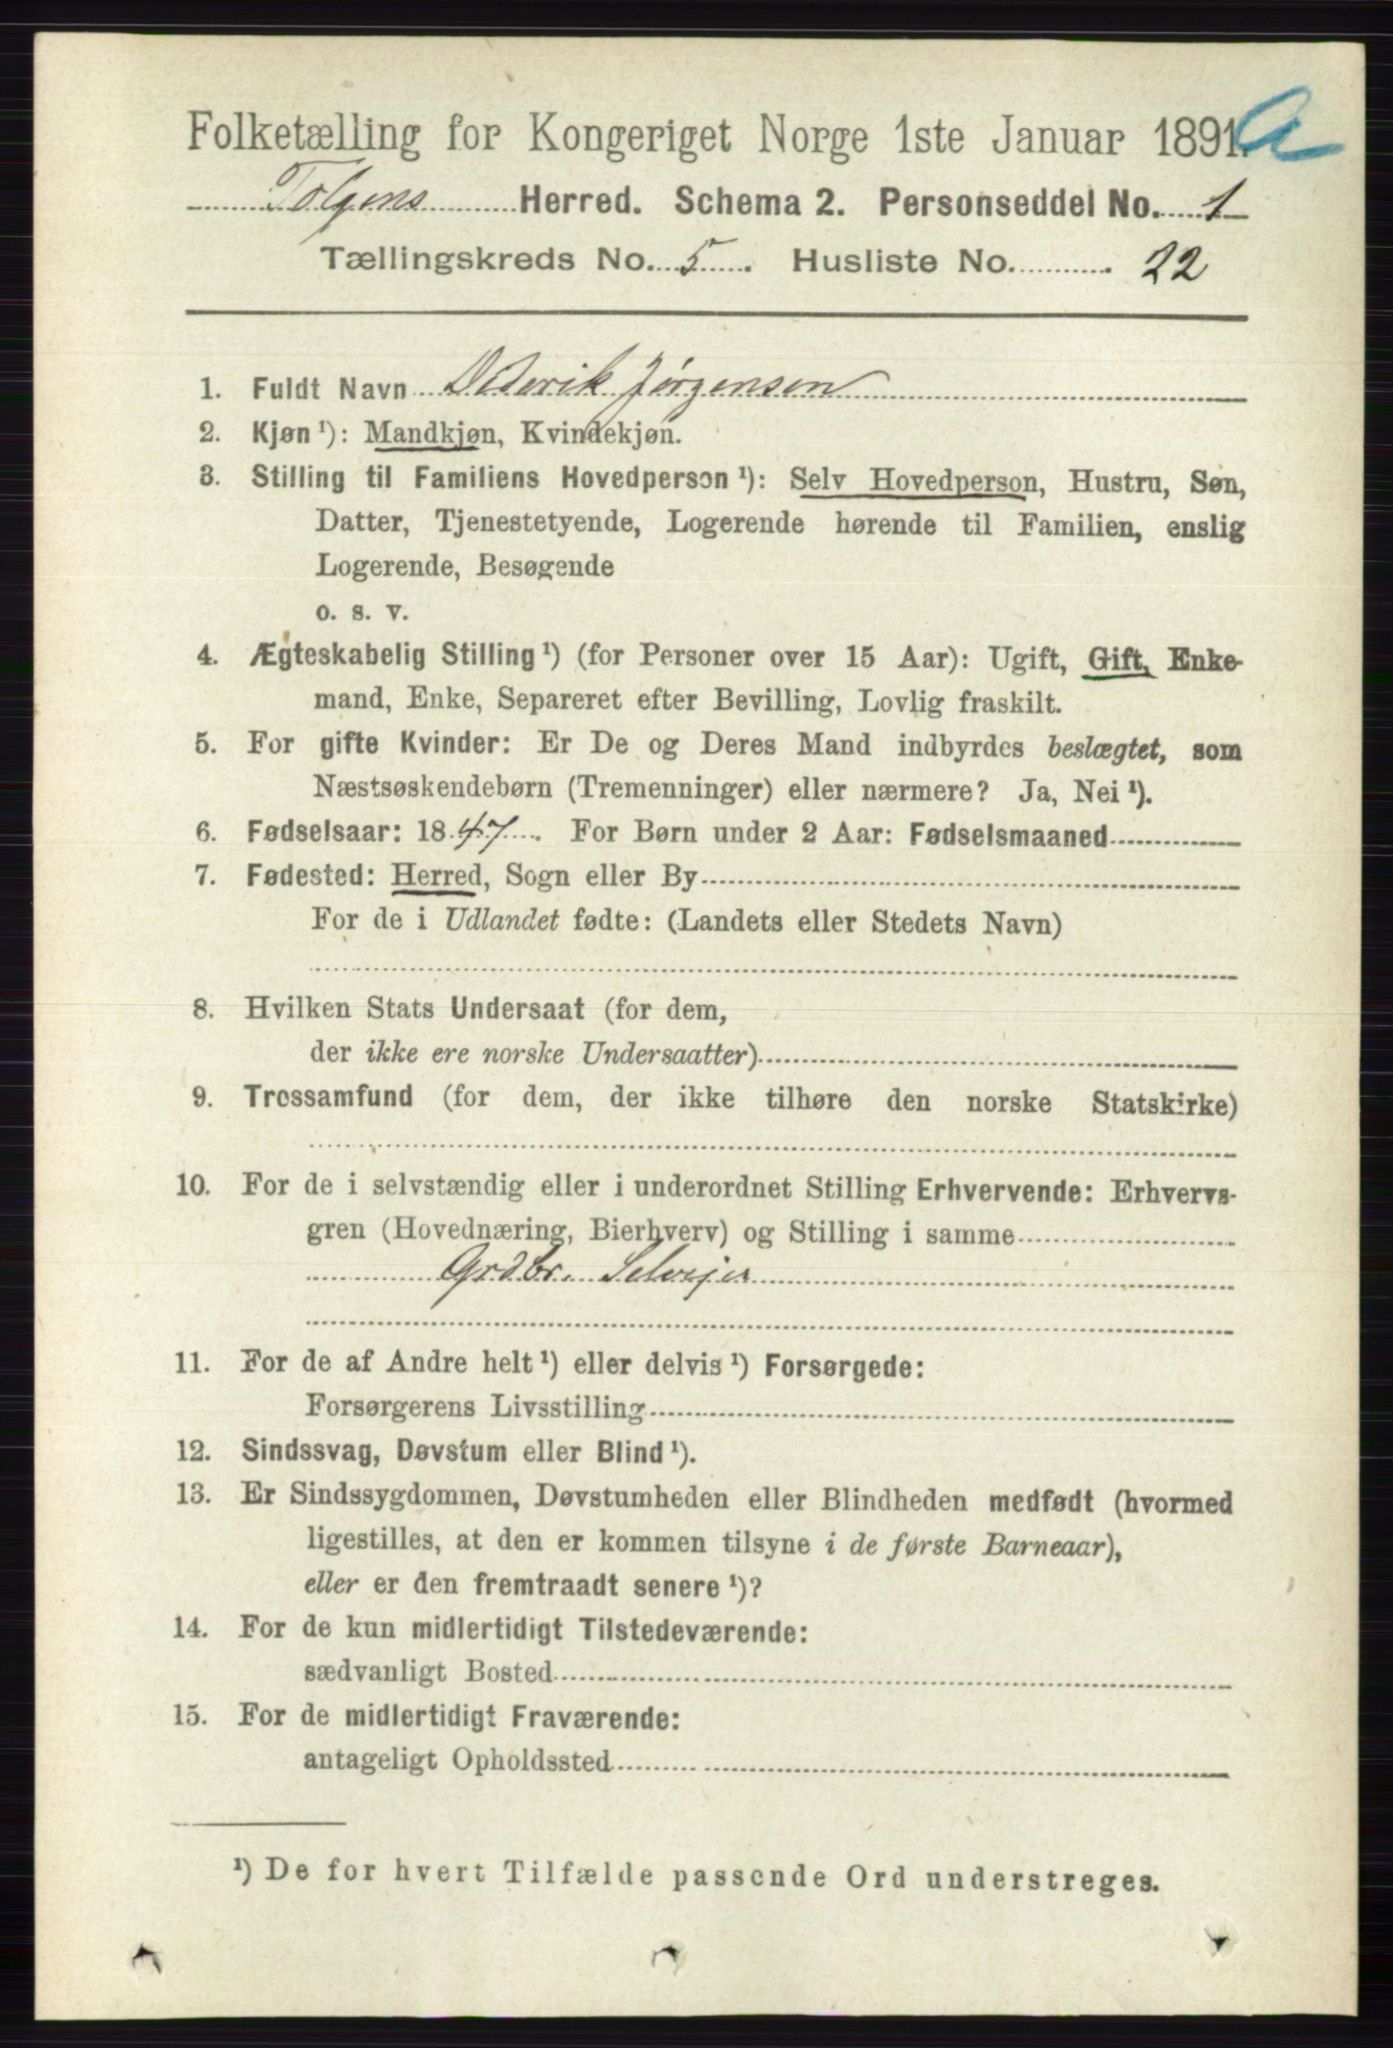 Folketælling for Kongeriget Norge 1ste Januar 1891. a
Tolgens Herred. Schema 2. Personseddel No. 1
Tællingskreds No. 5. Husliste No. 22
1. Fuldt Navn Dederik Jørgensen
2. Kjøn ¹): Mandkjøn, Kvindekjøn.
3. Stilling til Familiens Hovedperson ¹): Selv Hovedperson, Hustru, Søn,
Datter, Tjenestetyende, Logerende hørende til Familien, enslig
Logerende, Besøgende
o. s. v.
4. Ægteskabelig Stilling ¹) (for Personer over 15 Aar): Ugift, Gift, Enke-
mand, Enke, Separeret efter Bevilling, Lovlig fraskilt.
5. For gifte Kvinder: Er De og Deres Mand indbyrdes beslægtet, som
Næstsøskendebørn (Tremenninger) eller nærmere? Ja, Nei ¹).
6. Fødselsaar: 1847. For Børn under 2 Aar: Fødselsmaaned
7. Fødested: Herred, Sogn eller By
For de i Udlandet fødte: (Landets eller Stedets Navn)
8. Hvilken Stats Undersaat (for dem,
der ikke ere norske Undersaatter)
9. Trossamfund (for dem, der ikke tilhøre den norske Statskirke)
10. For de i selvstændig eller i underordnet Stilling Erhvervende: Erhvervs-
gren (Hovednæring, Bierhverv) og Stilling i samme
Grdbr. Selvejer
11. For de af Andre helt ¹) eller delvis ¹) Forsørgede:
Forsørgerens Livsstilling
12. Sindssvag, Døvstum eller Blind ¹).
13. Er Sindssygdommen, Døvstumheden eller Blindheden medfødt (hvormed
ligestilles, at den er kommen tilsyne i de første Barneaar),
eller er den fremtraadt senere ¹)?
14. For de kun midlertidigt Tilstedeværende:
sædvanligt Bosted
15. For de midlertidigt Fraværende:
antageligt Opholdssted
¹) De for hvert Tilfælde passende Ord understreges.